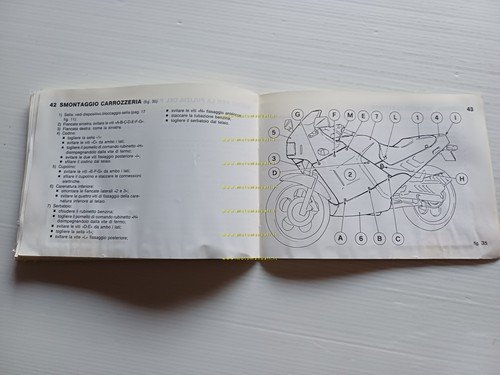 42 SMONTAGGIO CARROZZERIA (fig. 35)
1) Sella: vedi dispositivo bloccaggio sella (pag. 17
fig. 11).
2) Fiancata sinistra: svitare le viti
3) Fiancata destra: come la sinistra.
4) Codino:
■ togliere la sella «I»;
■ svitare le viti da ambo i lati;
■ togliere il pomello di comando rubinetto «H»
disimpegnandolo dalla vite di fermo;
■ svitare le due viti fissaggio posteriore
■ sfilare il codino.
5) Cupolino:
■ svitare le viti da ambo i lati;
■ sfilare il cupolino e staccare le connessioni
elettriche.
6) Carenatura inferiore:
■ smontare le fiancate laterali «2 e 3»;
■ svitare le quattro viti di fissaggio della care-
natura inferiore al telaio.
7) Serbatoio:
■ chiudere il rubinetto benzina;
■ togliere il pomello di comando rubinetto «H»
disimpegnandolo dalla vite di fermo;
■ svitare le viti da ambo i lati;
■ togliere la sella
■ svitare la vite fissaggio posteriore;
■ svitare le viti «M» fissaggio anteriore;
■ staccare la tubazione benzina;
■ togliere il serbatoio dal telaio.
43
G F M E 7 L 1 4 I
5
3
D
2
H
A 6 B C
fig. 35